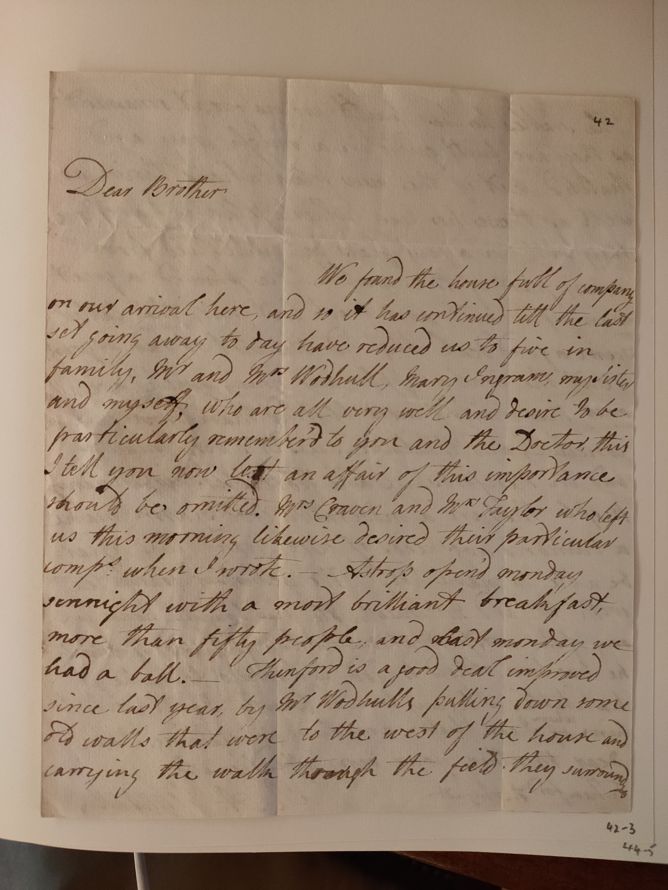 42
Dear Brother
We found the house full of company
on our arrival here, and so it has continued till the last
set going away to day have reduced us to five in
family, Mr and Mrs Wodhull, Mary Ingram, my sister
and myself, who are all very well and desire to be
particularly remember'd to you and the Doctor, this
I tell you now lest an affair of this importance
should be omitted. Mrs Craven and Mrs Taylor who left
us this morning likewise desired their particular
comps. when I wrote. — Astrop open'd monday
sennight with a most brilliant breakfast,
more than fifty people, and last monday we
had a ball. — Thenford is a good deal improved
since last year, by Mr Wodhulls pulling down some
old walls that were to the west of the house and
carrying the walk through the field they surround
42-3
44-5